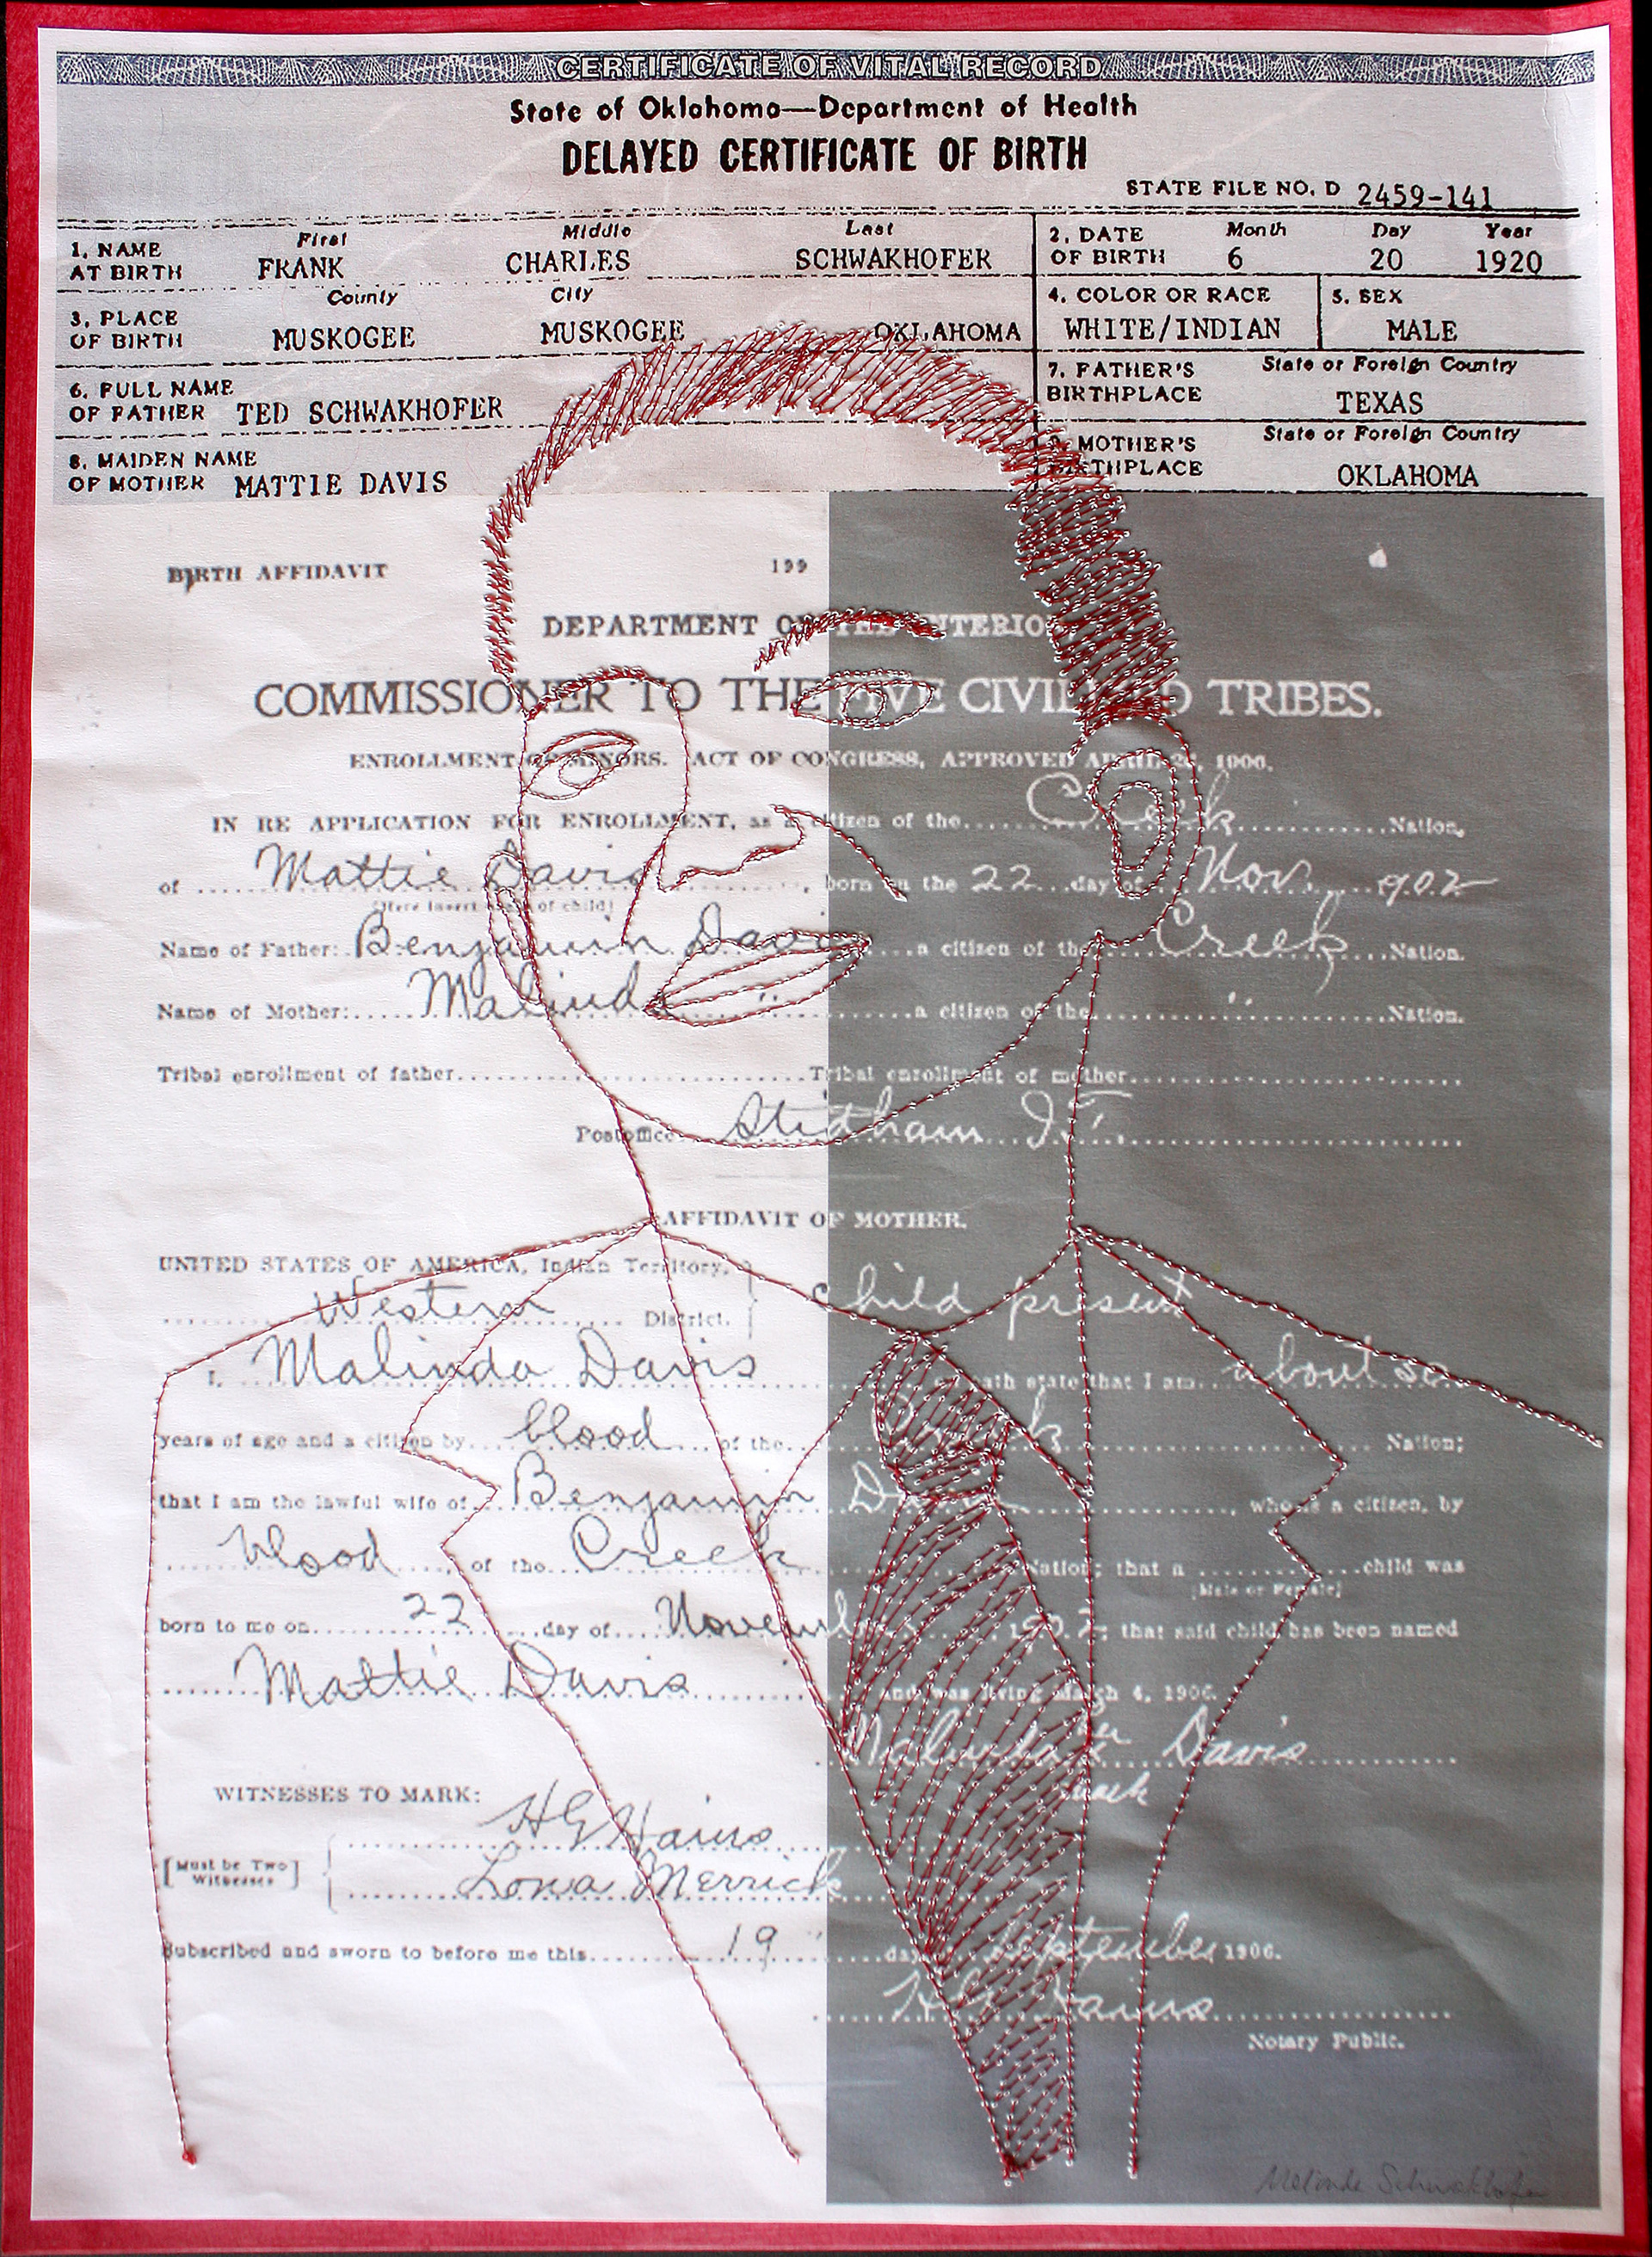 CERTIFICATE OF VITAL RECORD
State of Oklahoma—Department of Health
DELAYED CERTIFICATE OF BIRTH
STATE FILE NO. D 2459-141
1. NAME AT BIRTH First FRANK Middle CHARLES Last SCHWAKHOFER
2. DATE OF BIRTH Month 6 Day 20 Year 1920
3. PLACE OF BIRTH County MUSKOGEE City MUSKOGEE OKLAHOMA
4. COLOR OR RACE WHITE/INDIAN 5. SEX MALE
6. FULL NAME OF FATHER TED SCHWAKHOFER
7. FATHER'S BIRTHPLACE State or Foreign Country TEXAS
8. MAIDEN NAME OF MOTHER MATTIE DAVIS
MOTHER'S BIRTHPLACE State or Foreign Country OKLAHOMA
BIRTH AFFIDAVIT 199
DEPARTMENT OF THE INTERIOR
COMMISSIONER TO THE FIVE CIVILIZED TRIBES.
ENROLLMENT OF MINORS. ACT OF CONGRESS, APPROVED APRIL 1906.
IN RE APPLICATION FOR ENROLLMENT, as a citizen of the Creek Nation,
of Mattie Davis, born on the 22 day of Nov. 902
(Here insert name of child)
Name of Father: Benjamin Davis a citizen of the Creek Nation.
Name of Mother: Malinda " a citizen of the " Nation.
Tribal enrollment of father Tribal enrollment of mother
Postoffice Stidham I.T.
AFFIDAVIT OF MOTHER.
UNITED STATES OF AMERICA, Indian Territory,
Western District. Child present
I, Malinda Davis on oath state that I am about
years of age and a citizen by blood of the Creek Nation;
that I am the lawful wife of Benjamin Davis, who is a citizen, by
blood of the Creek Nation; that a child was
[Male or Female]
born to me on 22 day of November, 1902; that said child has been named
Mattie Davis and was living March 4, 1906.
Malinda x Davis
mark
WITNESSES TO MARK:
[Must be Two Witnesses] HG Hains
Lona Merrick
Subscribed and sworn to before me this 19 day September 1906.
HG Hains
Notary Public.
Melinda Schwakhofer